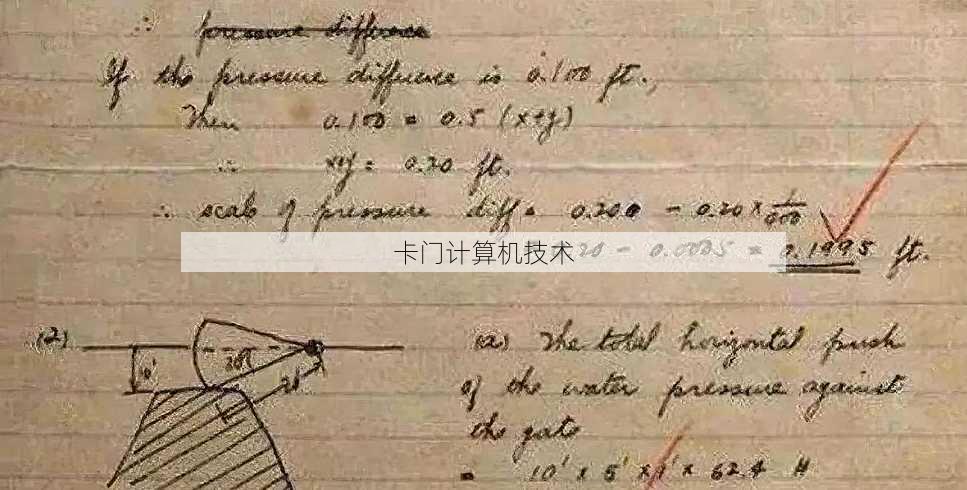 ∴ pressure difference
If the pressure difference is 0.100 ft.,
Then 0.100 = 0.5 (x+y)
∴ x+y = 0.20 ft.
∴ scale of pressure diff = 0.200 - 0.20 ×
卡门计算机技术
20 - 0.0005 = 0.1995 ft.
(2)
10'
20'
(a) The total horizontal push
of the water pressure against
the gate
= 10' × 5' × 1' × 62.4 #